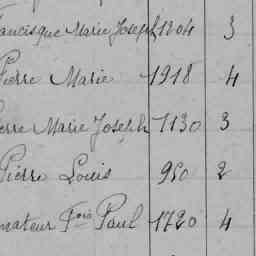 Francisque Marie Joseph 1204 3
Pierre Marie 1918 4
Pierre Marie Joseph 1130 3
Pierre Louis 950 2
Amateur Fois Paul 1720 4